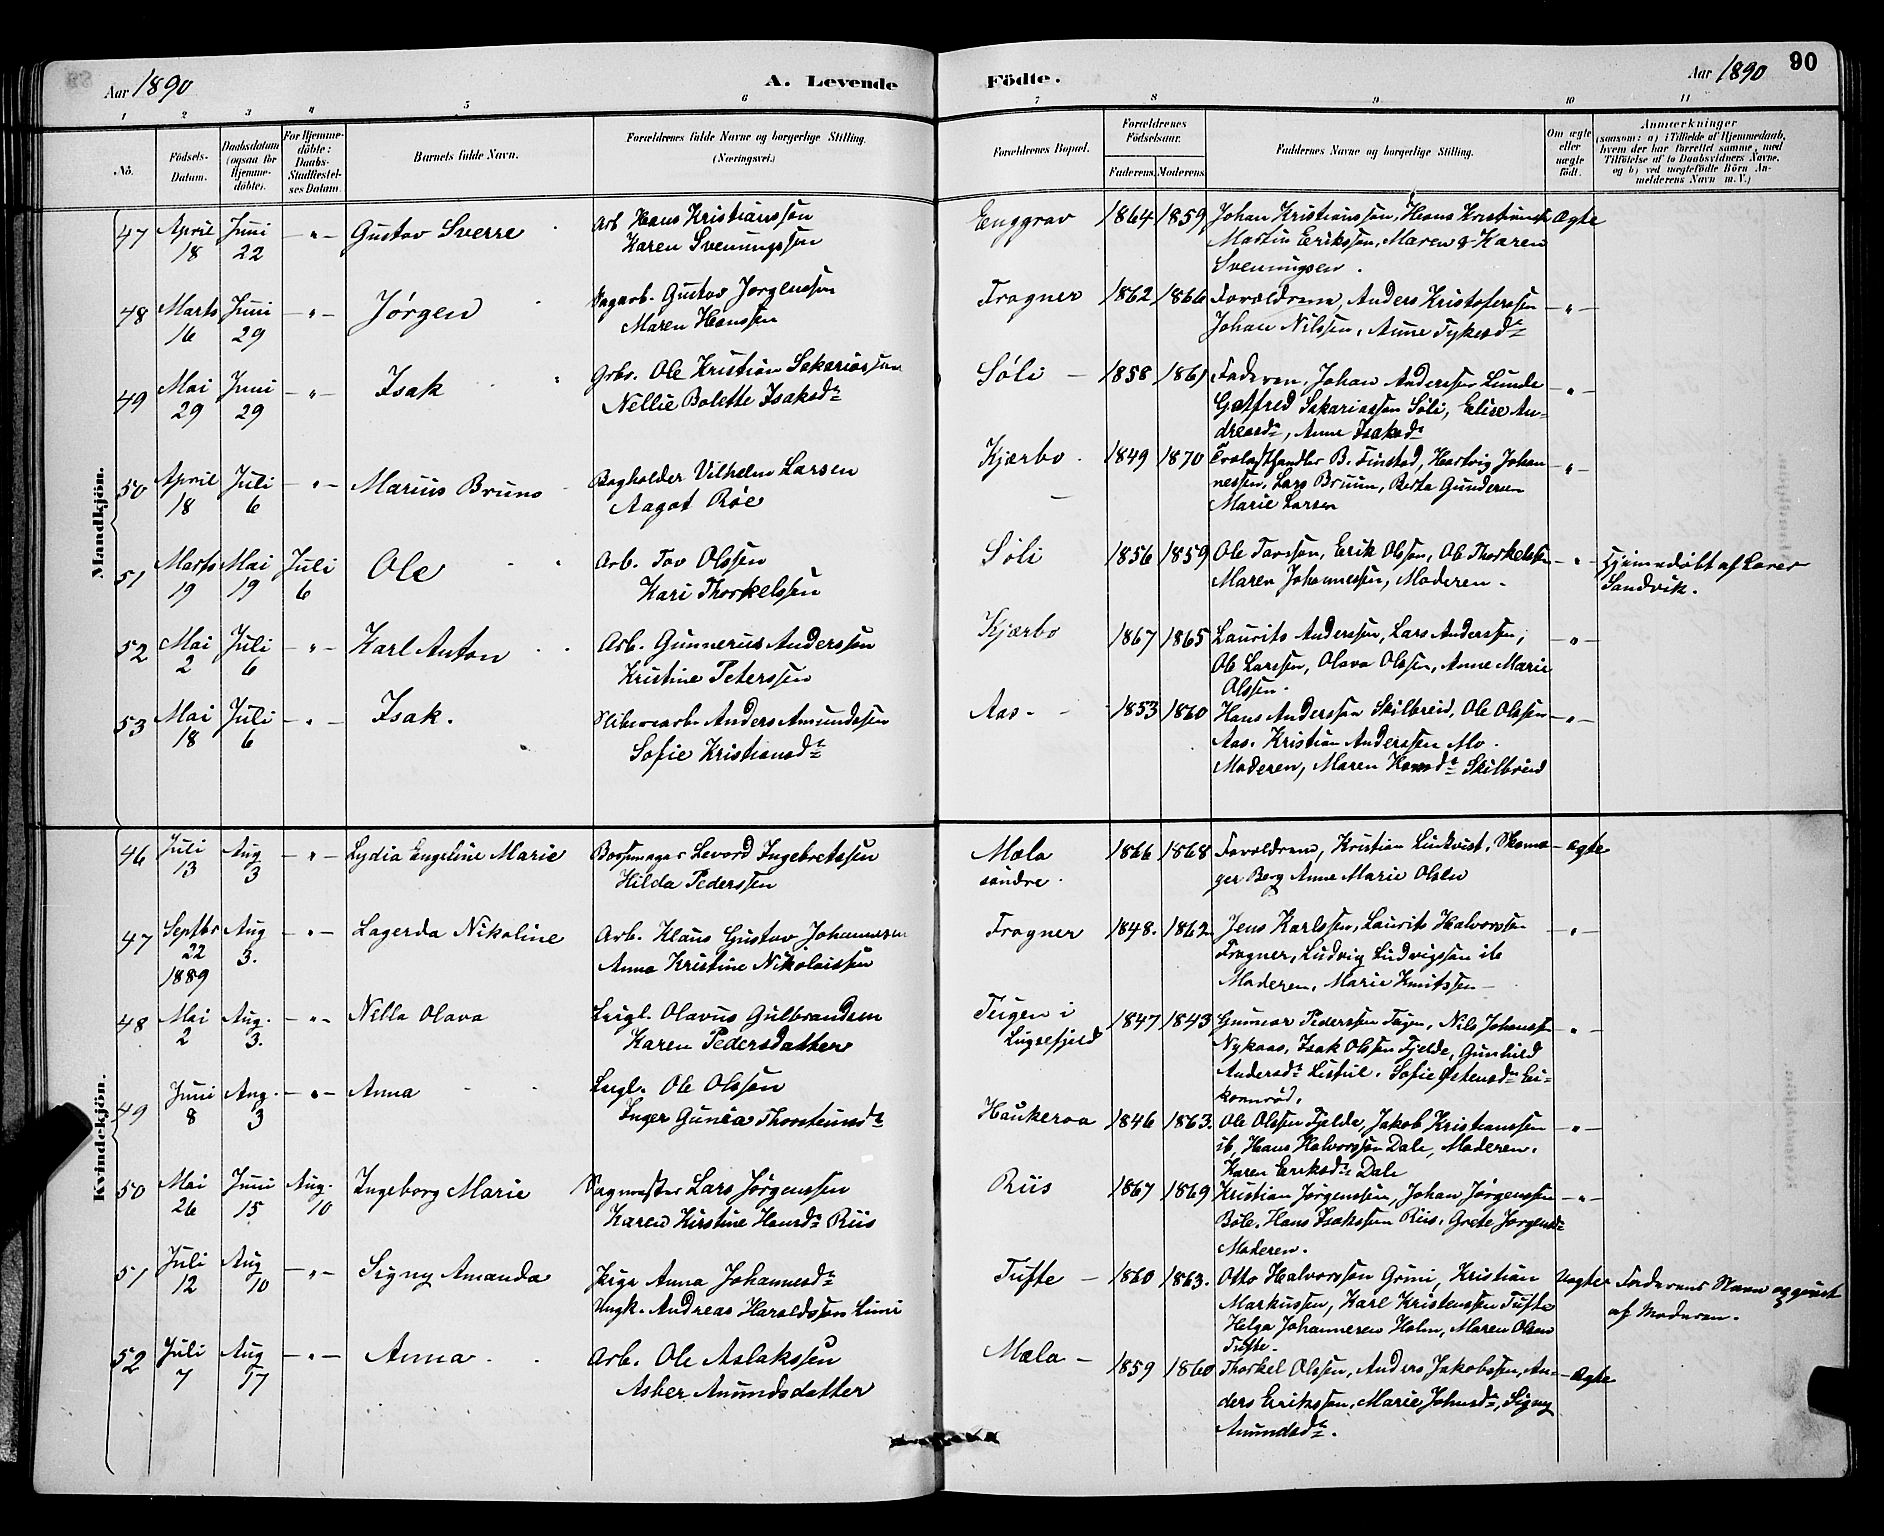 Aar 1890
A. Levende
Födte.
Aar 1890
90
1 2 3 4 5 6 7 8 9 10 11
No.
Födsels-
Datum.
Daabsdatum
(ogsaa for
Hjemme-
döbte).
For Hjemme-
döbte:
Daabs-
Stadfæstel-
ses Datum.
Barnets fulde Navn.
Forældrenes fulde Navne og borgerlige Stilling.
(Næringsvei.)
Forældrenes Bopæl.
Forældrenes
Födselsaar.
Faderens. Moderens.
Faddernes Navne og borgerlige Stilling.
Om ægte
eller
uægte
født.
Anmærkninger
(saasom: a) i Tilfælde af Hjemmedaab,
hvem der har forrettet samme, med
Tilföielse af to Daabsvidners Navne,
og b) ved uægtefödte Börn An-
melderens Navn m. V.)
Mandkjön.
47 April 18 Juni 22 - " - Gustav Sverre
Arb Hans Kristianssøn
Karen Svenungssøn
Enggrav 1864 1859
Johan Kristianssøn, Hans Kristianss
Martin Erikssøn, Maren & Karen
Svenungsen.
Ægte
48 Marts 16 Juni 29 - " - Jørgen
Sagarb. Gustav Jørgenssøn
Maren Hanssøn
Frogner 1862 1866
Forældrene, Anders Kristoferssøn
Johan Nilssøn, Anne
- " -
49 Mai 29 Juni 29 - " - Isak
Grbr. Ole Kristian Sakariassøn
Nellie Bolette Isaksdr
Søli 1858 1861
Faderen, Johan Anderssøn Lunde
Gotfred Sakariassøn Søli, Elise An-
dreasdr, Anne Isaksdr
- " -
50 April 18 Juli 6 - " - Marius Bruno
Bogholder Vilhelm Larsen
Aagot Röe
Kjærbo 1849 1870
Trælasthandler B. Finstad, Hartvig Johan
nessen, Lars Bruun, Berta Gundersen
Marie Larsen
- " -
51 Marts 19 Mai 19 Juli 6 Ole
Arb. Tov Olssen
Kari Thorkelssøn
Søli 1856 1859
Ole Tovssøn, Erik Olssøn, Ole Thorkelssøn
Maren Johannessøn, Moderen.
- " -
Hjemmedøbt af Lærer
Sandvik.
52 Mai 2 Juli 6 - " - Karl Anton
Arb. Gunnerius Anderssøn
Kristine Peterssøn
Kjærbo 1867 1865
Laurits Anderssøn, Lars Anderssøn,
Ole Larssøn, Olava Olssøn, Anne Marie
Olssøn.
- " -
53 Mai 18 Juli 6 - " - Isak.
Sliberiearb. Anders Amundssøn
Sofie Kristiansdr
Aas 1853 1860
Hans Anderssøn Skilbreid, Ole Olssøn
Aas. Kristian Anderssøn Mo.
Moderen, Maren Hansdr Skilbreid
- " -
Kvindekjön.
46 Juli 13 Aug 3 - " - Lydia Engeline Marie
Bøssemager Levord Ingebretssøn
Hilda Pederssøn
Mæla
søndre. 1866 1868
Forældrene, Kristian Lindkvist, Skoma-
ger Berg Anne Marie Olsen
Ægte
47 Septbr 22 1889 Aug 3. - " - Lagerda Nikoline
Arb. Klaus Gustav Johannessen
Anna Kristine Nikolaissen
Frogner 1848. 1862
Jens Karlssen, Laurits Halvorssøn
Frogner, Ludvig Ludvigssøn ib
Moderen, Marie Knutssøn
- " -
48 Mai 2 Aug. 3. - " - Nella Olava
Leigl. Olavus Gulbrandsen
Karen Pedersdatter
Teigen i
Luksefjeld 1847 1843
Gunnar Pederssøn Teigen, Nils Johanss
Nykaas, Isak Olssøn Fjelde, Gunhild
Andersdr Listul. Sofie Østensdr Ei-
konrød.
- " -
49 Juni 8 Aug. 3 - " - Anna
Leigl. Ole Olssøn
Inger Gunea Thorsteinsdr
Haukeraa 1846 1863.
Ole Olssøn Fjelde, Jakob Kristianssen
ib, Hans Halvorssøn Dale, Moderen.
Karen Eriksdr Dale
- " -
50 Mai 26 Juni 15 Aug. 10 Ingeborg Marie
Sagmester Lars Jørgenssen
Karen Kirstine Hansdr Riis
Riis 1867 1869
Kristian Jørgenssøn, Johan Jørgenssen
Bøle, Hans Isakssen Riis, Grete Jørgensdr
Moderen.
- " -
51 Juli 12 Aug 10 - " - Signy Amanda
Pige Anna Johannesdr
Ungk. Andreas Haraldssøn Limi
Tufte 1860 1863.
Otto Halvorssøn Grini, Kristian
Markussen, Karl Kristenssen Tufte
Helga Johannesen Holm, Maren Olsen
Tufte.
Uægte
Faderens Navn opgivet
af Moderen.
52 Juli 7 Aug 17 - " - Anna
Arb. Ole Aslakssen
Asber Anundsdatter
Mæla 1859 1860
Thorkel Olssøn, Anders Jakobssen, An-
ders Erikssen, Marie Johnsdr, Signy
Anundsdr.
Ægte